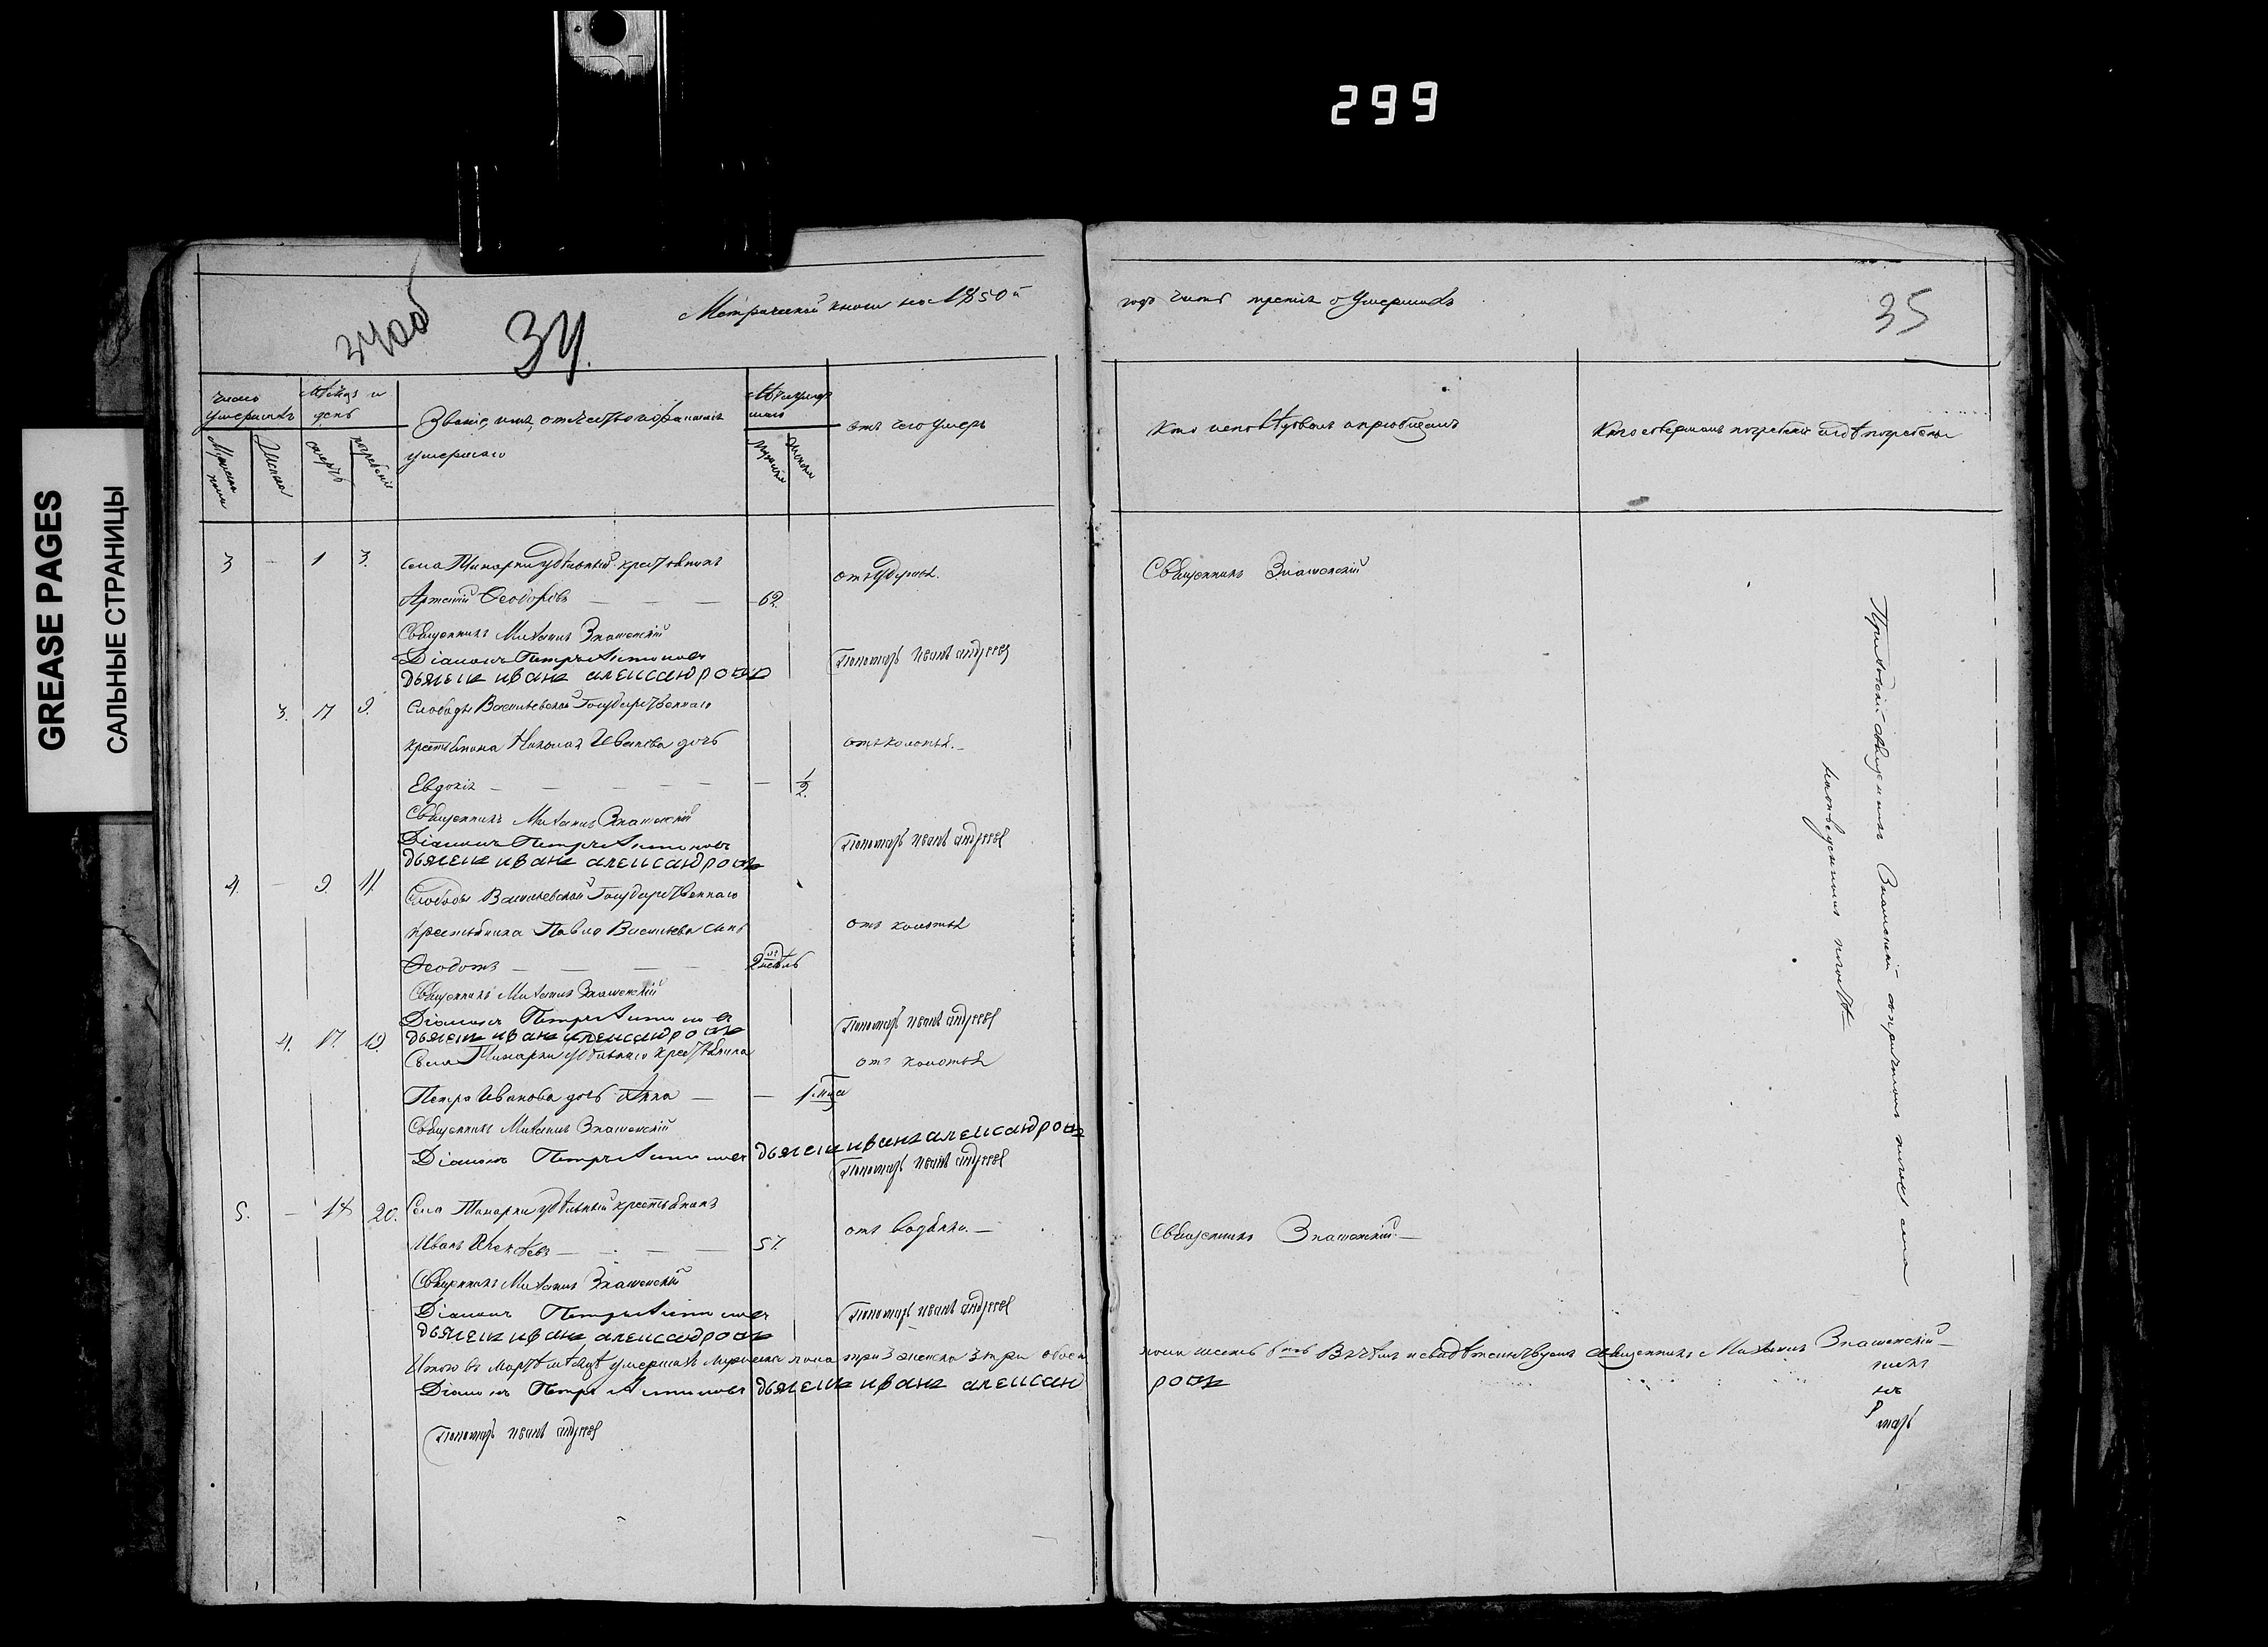 299
GREASE PAGES
САЛЬНЫЕ СТРАНИЦЫ
34об
34.
Метрической книги на 1850й
годъ часть третія о умершихъ
35
число умершихъ
Мѣсяцъ и день
Званіе, имя, отчество и фамилія умершаго
Лѣта умершаго
отъ чего умеръ
Кто исповѣдовалъ и пріобщалъ
Кто совершалъ погребеніе и гдѣ погребены
Мужеска пола
Женска
смерть
погребеніе
мужескій
женскій
3 — 1 3. Села Тинарки удѣльный крестьянинъ
отъ удушья.
Священникъ Знаменскій
Артемій Ѳеодоровъ — — — 62.
Священникъ Михаилъ Знаменскій
Діаконъ Петръ
Пономарь Иванъ Андреевъ
дьячекъ иванъ александровъ
3. 9. Слободы Васильевской Государственнаго
крестьянина Иванова дочь
отъ колотья.—
Евдокія — — — — — 1/2.
Священникъ Михаилъ Знаменскій
Діаконъ Петръ
Пономарь Иванъ Андреевъ
дьячекъ иванъ александровъ
4. — 9. 11. Слободы Васильевской Государственнаго
крестьянина Павла Васильева сынъ
отъ колотья
Ѳеодотъ — — — — 2 недѣль
Священникъ Михаилъ Знаменскій
Діаконъ Петръ
Пономарь Иванъ Андреевъ
дьячекъ иванъ александровъ
4. 17. 19. Села Тинарки удѣльнаго крестьянина
отъ колотья
Петра Иванова дочь Анна — — 1. мца
Священникъ Михаилъ Знаменскій
Діаконъ Петръ дьячекъ иванъ александровъ
Пономарь Иванъ Андреевъ
5. — 18 20. Села Тинарки удѣльный крестьянинъ
отъ водянки.—
Священникъ Знаменскій.—
Иванъ — — — 57.
Священникъ Михаилъ Знаменскій
Діаконъ Петръ
Пономарь Иванъ Андреевъ
дьячекъ иванъ александровъ
Итого въ Мартѣ мѣсяцѣ умершихъ мужеска пола три 3 женска 3 три обоего
пола шесть 6ть свидѣтельствуемъ священникъ Михаилъ Знаменскій—
Діаконъ Петръ дьячекъ иванъ александ
ровъ
Пономарь Иванъ Андреевъ
Приходскій священникъ Знаменскій съ причтомъ села
на отведенномъ